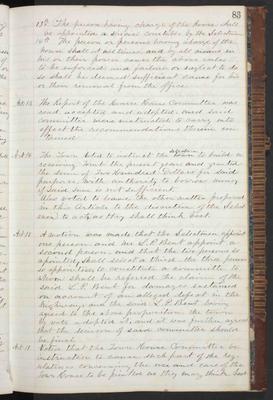 83
13th The person having charge of the House, shall
be appointed a special constable by the Selectmen
14th The person or persons having charge of the
House shall at all times and by all means in
his or their power cause the above rules
to be enforced and failure or neglect to do
so shall be deemed sufficient cause for his
or their removal from the office.
Art. 13 The report of the Town House Committee was
read accepted and adopted and said
Committee was instructed to carry into
effect the recommendations therein con
tained
Art 14 The Town voted to instruct the Selectmen to build a
the sum of Two Hundred Dollars for said
purpose, with authority to borrow money
if said sum is not sufficient.
Also voted to leave the other matter proposed
in this article to the discretion of the Select
men to act as they shall think best.
Art 15 A motion was made that the Selectmen appoint
one person, and Mr S. P. Bent appoint a
second person and that the two persons so
appointed, shall select a third, the three persons
so appointed to constitute a committee to
whom shall be referred the claim of the
said S. P. Bent for damages sustained
on account of an alleged defect in the
highway and the said S. P. Bent having
agreed to the above proposition the town
by vote adopted it, and it was further agreed
that the decision of said committee should
be final.
Voted that the Town House Committee be
instructed to cause such part of the reg
ulations concerning the use and care of the
Town House to be printed as they may think best